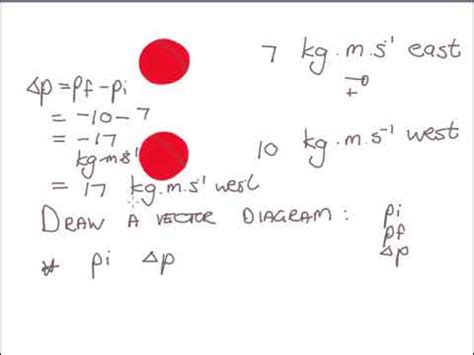 7 kg.m.s⁻¹ east
Δp = pf - pi
= -10 - 7
= -17
kg.m.s⁻¹
10 kg.m.s⁻¹ west
= 17 kg.m.s⁻¹ west
DRAW A VECTOR DIAGRAM : pi
pf
Δp
pi Δp